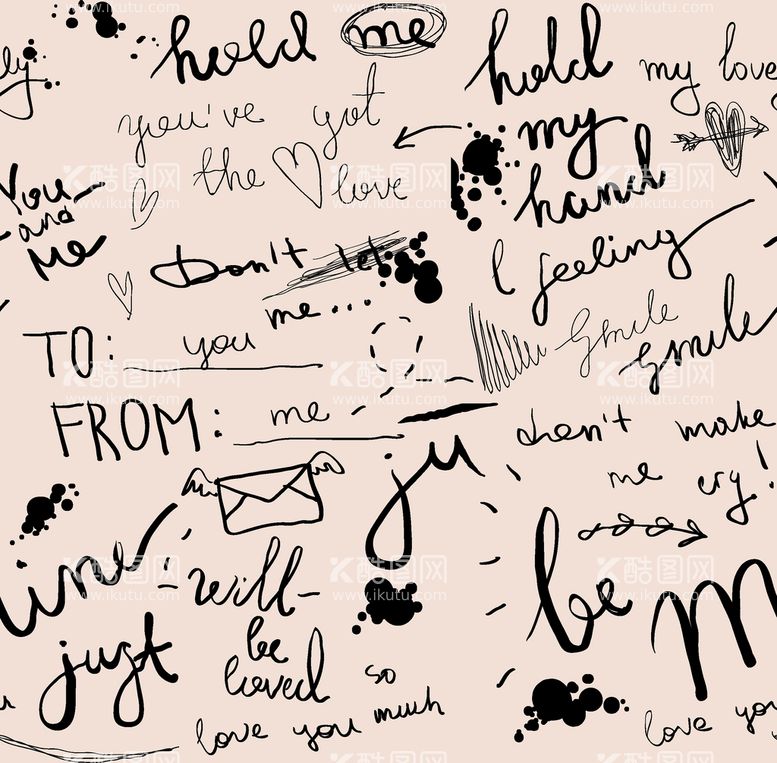 hold me
hold
my
hand
my love
you've got
the love
You
and
Me
Don't let
me...
I feeling
Smile
Smile
TO: you
FROM: me
don't make
me cry!
ju
will-
be
loved
just
be
so
love you much
love you
酷图网
www.ikutu.com